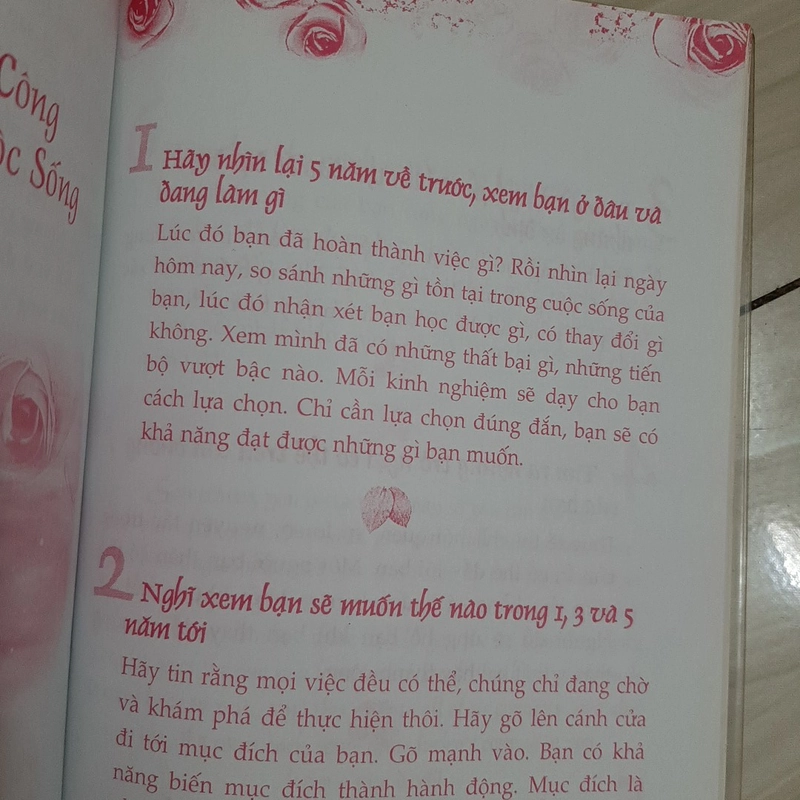 Công
ộc Sống
1 Hãy nhìn lại 5 năm về trước, xem bạn ở đâu và
đang làm gì
Lúc đó bạn đã hoàn thành việc gì? Rồi nhìn lại ngày
hôm nay, so sánh những gì tồn tại trong cuộc sống của
bạn, lúc đó nhận xét bạn học được gì, có thay đổi gì
không. Xem mình đã có những thất bại gì, những tiến
bộ vượt bậc nào. Mỗi kinh nghiệm sẽ dạy cho bạn
cách lựa chọn. Chỉ cần lựa chọn đúng đắn, bạn sẽ có
khả năng đạt được những gì bạn muốn.
2 Nghĩ xem bạn sẽ muốn thế nào trong 1, 3 và 5
năm tới
Hãy tin rằng mọi việc đều có thể, chúng chỉ đang chờ
và khám phá để thực hiện thôi. Hãy gõ lên cánh cửa
đi tới mục đích của bạn. Gõ mạnh vào. Bạn có khả
năng biến mục đích thành hành động. Mục đích là